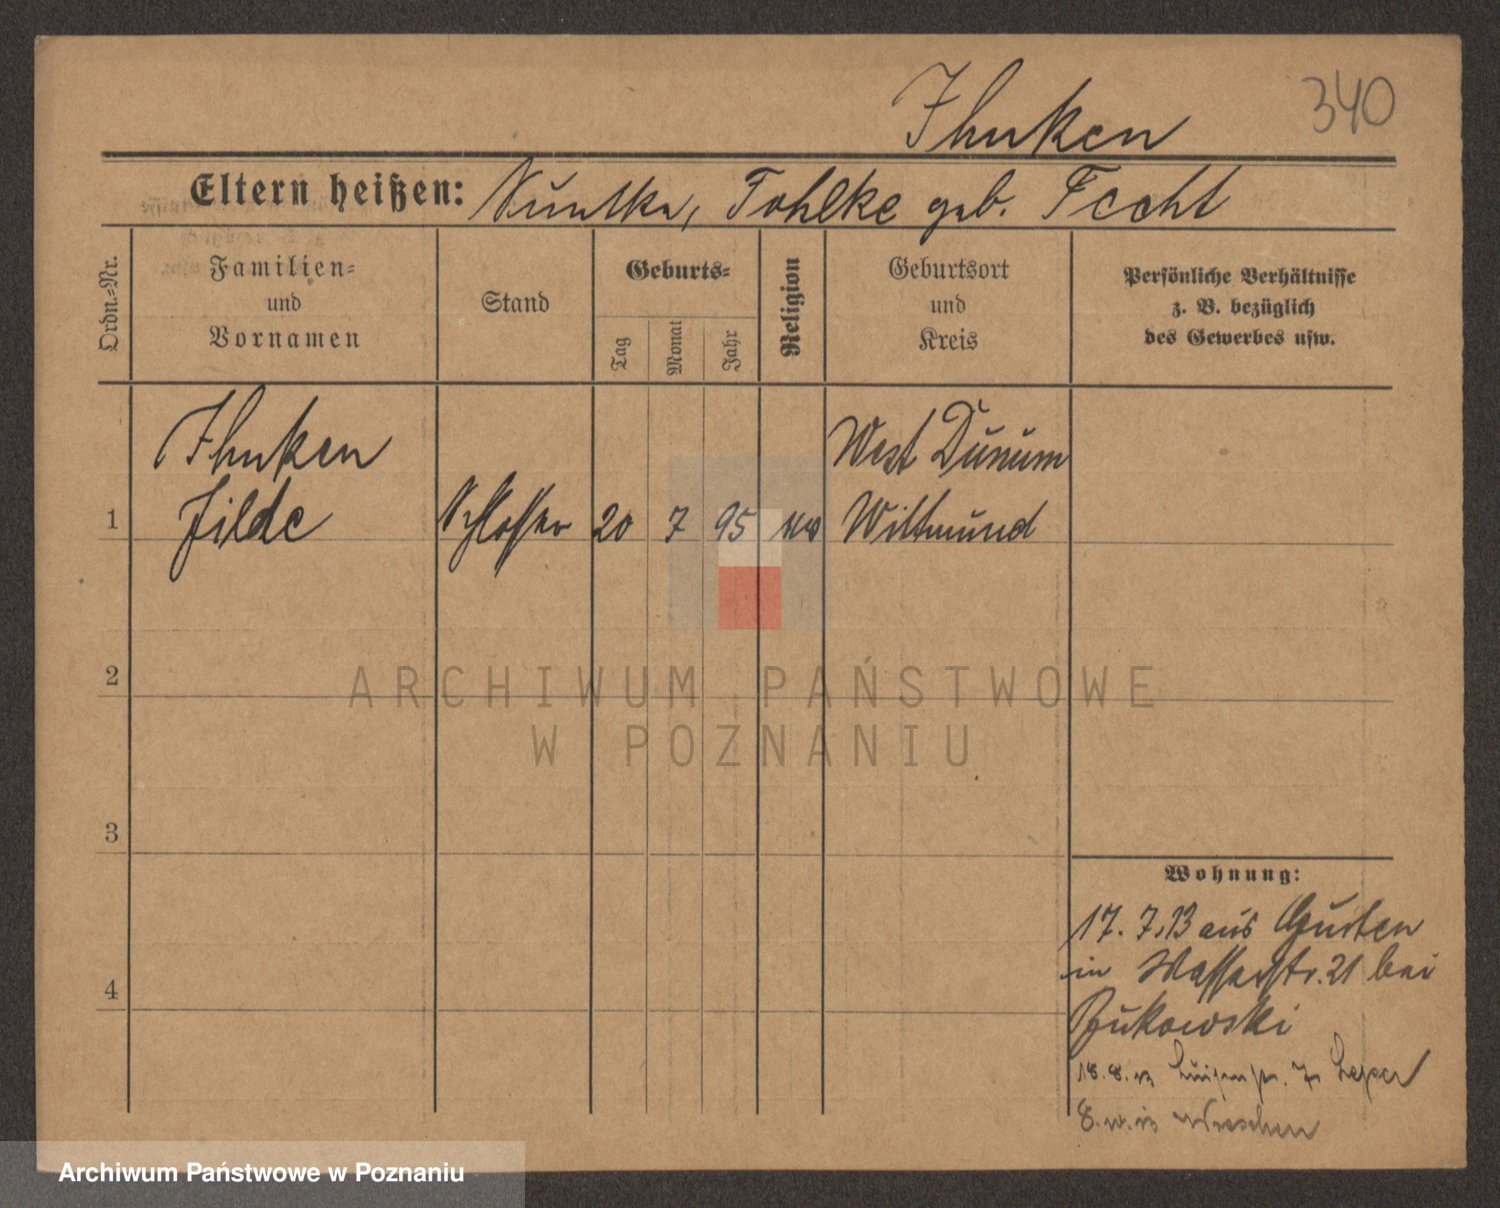 Ihnken
340
Eltern heißen: Tohlke geb. Fecht
Ordn.=Nr.
Familien=
und
Vornamen
Stand
Geburts=
Tag
Monat
Jahr
Religion
Geburtsort
und
Kreis
Persönliche Verhältnisse
z. B. bezüglich
des Gewerbes usw.
Ihnken West Dunum
1 Schlosser 20 7 95 Wittmund
2
ARCHIWUM PAŃSTWOWE
W POZNANIU
3
4
Wohnung:
17. 7. 13 aus Gurten
in Wasserstr. 21 bei
Bukowski
18. 8. 13 Luisenstr. 7
Wreschen
Archiwum Państwowe w Poznaniu